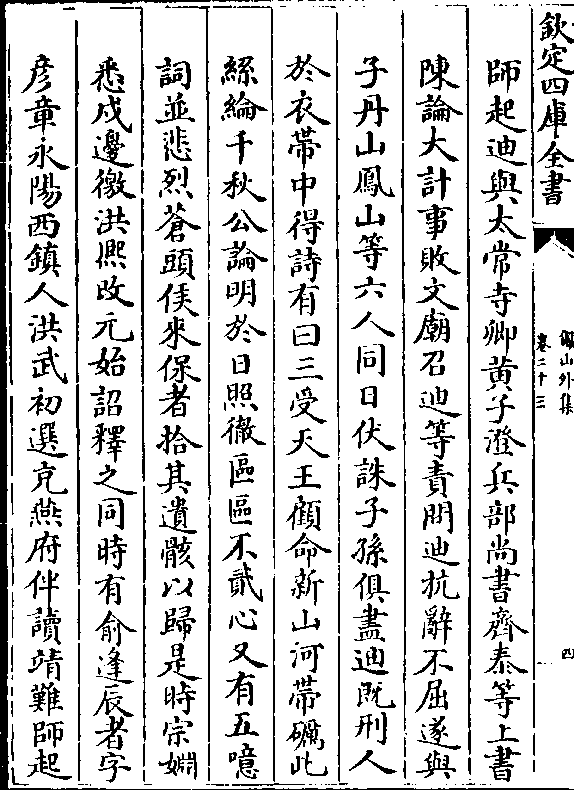 欽定四庫全書
卷二十三
四
師起迪與太常寺卿黄子澄兵部尚書齊泰等上書
陳論大計事敗文廟召迪等責問迪抗辭不屈遂與
子丹山鳳山等六人同日伏誅子孫俱盡迪既刑人
於衣帶中得詩有曰三受天王顧命新山河帶礪此
絲綸千秋公論明於日照徹區區不貳心又有五噫
詞並悲烈蒼頭侯來保者拾其遺骸以歸是時宗姻
悉戍邊徼洪熙改元始詔釋之同時有俞逢辰者字
彦章永陽西鎮人洪武初選充燕府伴讀靖難師起